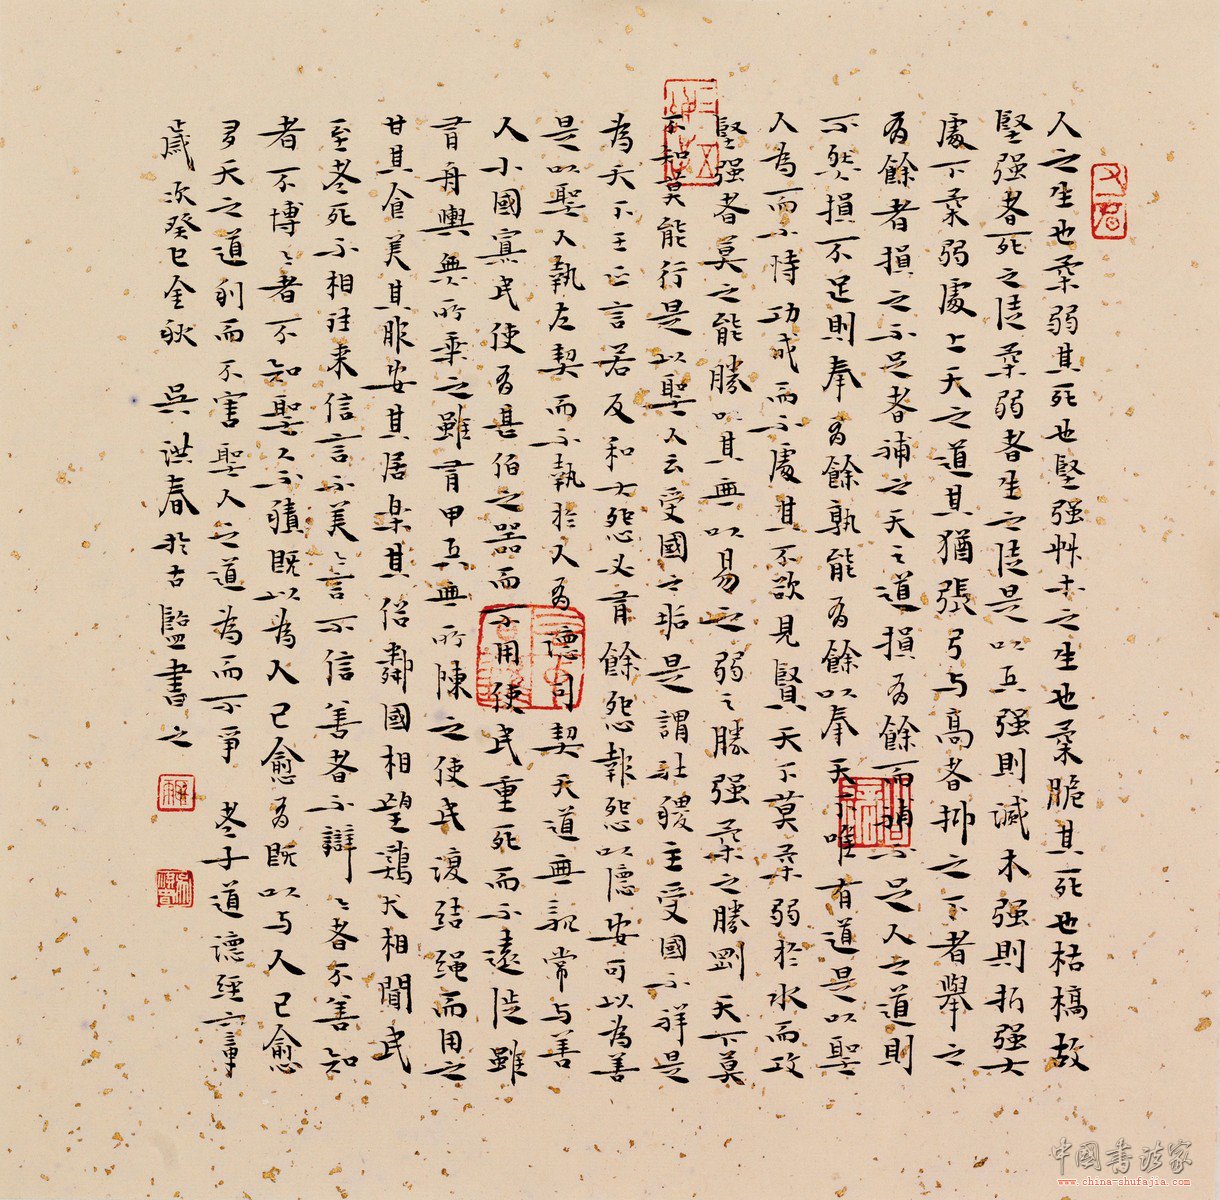 人之生也柔弱其死也堅强艸木之生也柔脆其死也枯槁故
堅强者死之徒柔弱者生之徒是以兵强則滅木强則折强大
處下柔弱處上天之道其猶張弓与高者抑之下者舉之
有餘者損之不足者補之天之道損有餘而補不足人之道則
不然損不足則奉有餘孰能有餘以奉天下唯有道是以聖
人為而不恃功成而不處其不欲見賢天下莫柔弱於水而攻
堅强者莫之能勝以其無以易之弱之勝强柔之勝剛天下莫
不知莫能行是以聖人云受國之垢是謂社稷主受國不祥是
為天下王正言若反和大怨必有餘怨報怨以德安可以為善
是以聖人執左契而不執於人有德司契天道無親常与善
人小國寡民使有甚佰之器而不用使民重死而不遠徙雖
有舟輿無所乘之雖有甲兵無所陳之使民復结绳而用之
甘其食美其服安其居樂其俗鄰國相望鷄犬相聞民
至老死不相往来信言不美ゝ言不信善者不辯ゝ者不善知
者不博ゝ者不知聖人不積既以為人己愈有既以与人己愈
多天之道利而不害聖人之道為而不爭 老子道德經六章
歲次癸巳金秋 吳洪春於古監書之
中国书法家
www.china-shufajia.com